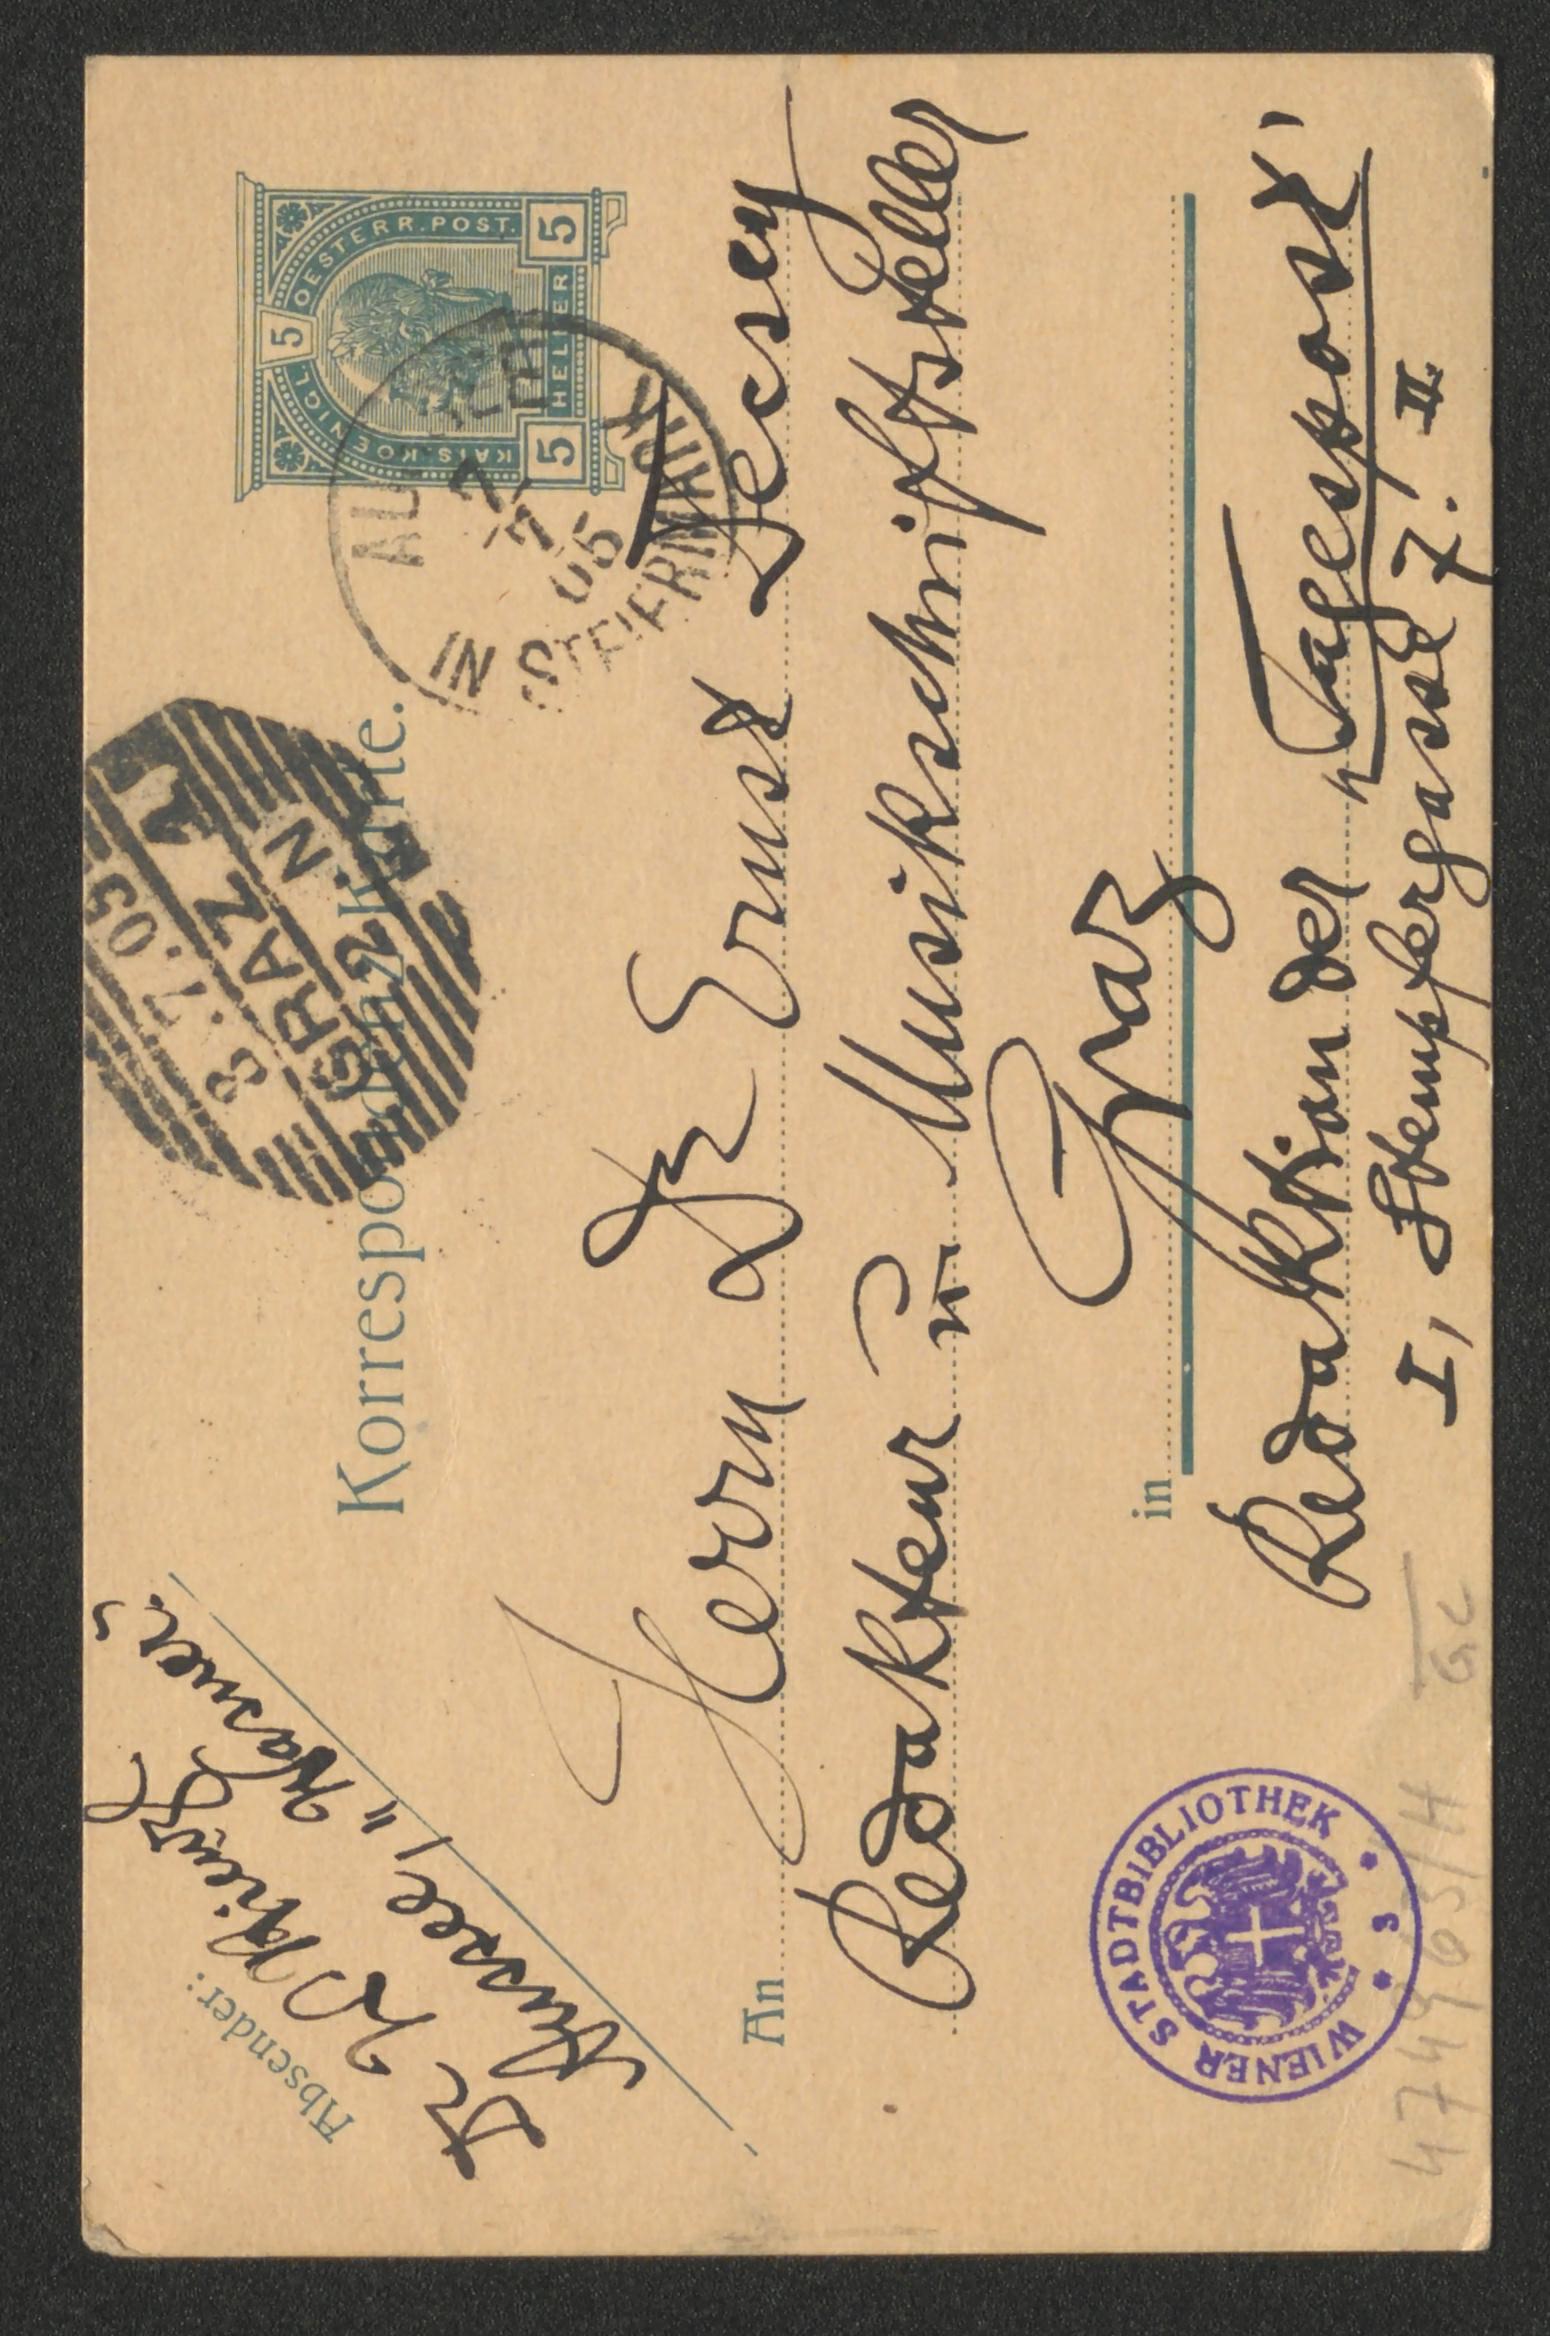 Absender:
Dr W Kienzl
Aussee, "Wasner."
Korrespondenzkarte.
KAIS. KOENIGL. 5 OESTERR. POST.
5 HELLER 5
IN
7
7
05
STEIERMARK
8.7.05
GRAZ 1
GRAZ
An Herrn Dr Ernst Decsey
Redakteur u. Musikschriftsteller
in Graz
Redaktion der „Tagespost",
I, Stempfergasse 7. II.
WIENER STADTBIBLIOTHEK * 3 *